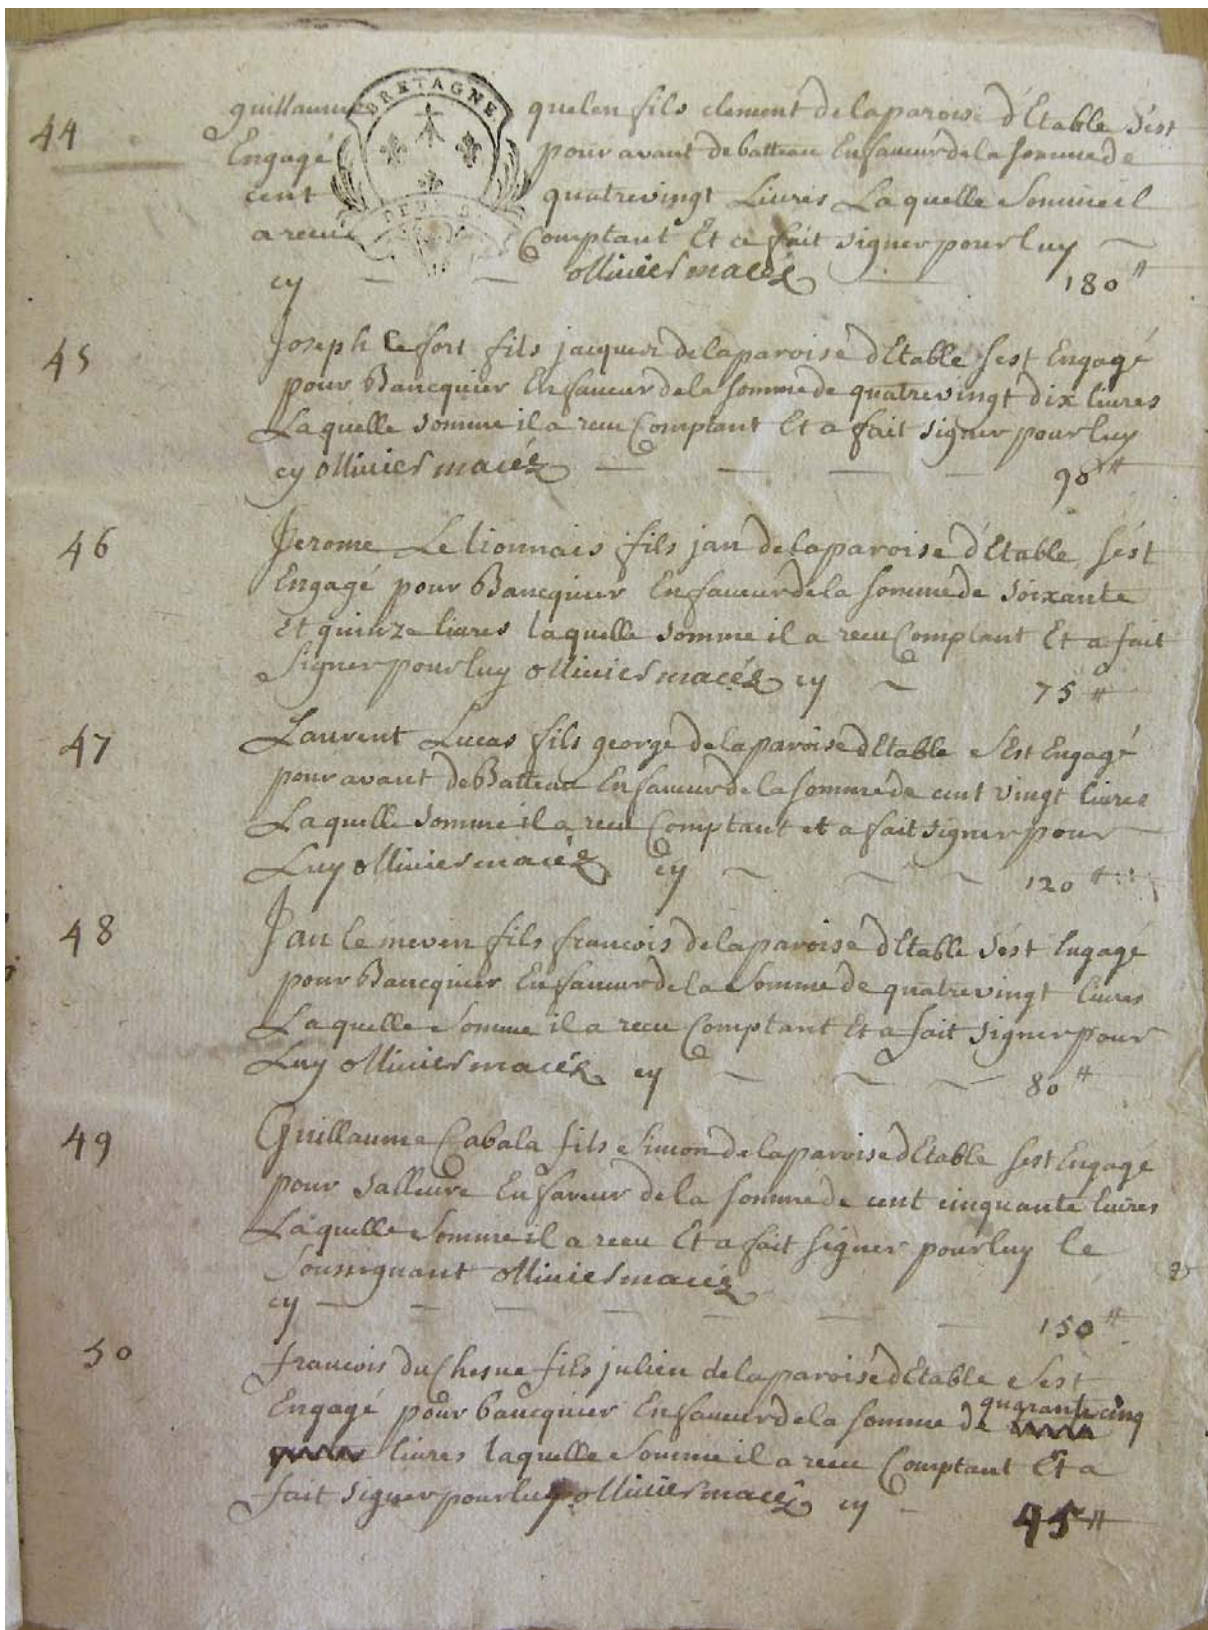 BRETAGNE
44 guillaume quelen fils clement de la paroise d'Etable s'est
Engagé pour avant de batteau En faveur de la somme de
cent quatre vingt Livres Laquelle Somme il
a receu Comptant Et a fait signer pour luy
cy ollivier macée 180 ₶
45 Joseph Le fort fils jacques de la paroise d'Etable s'est Engagé
pour Bancquier En faveur de la somme de quatre vingt dix livres
Laquelle somme il a receu Comptant Et a fait signer pour luy
cy ollivier macée 90 ₶
46 Jerome Le lionnais fils jan de la paroise d'Etable, s'est
Engagé pour Bancquier En faveur de la somme de soixante
Et quinze livres laquelle somme il a receu Comptant Et a fait
signer pour luy ollivier macée cy 75 ₶
47 Laurent Lucas fils george de la paroise d'Etable s'Est Engagé
pour avant de Batteau En faveur de la somme de cent vingt livres
Laquelle somme il a receu Comptant et a fait signer pour
Luy ollivier macée cy 120 ₶
48 Jan le meven fils francois de la paroise d'Etable s'est Engagé
pour Bancquier En faveur de la Somme de quatre vingt livres
Laquelle Somme il a receu Comptant Et a fait signer pour
Luy ollivier macée cy 80 ₶
49 Guillaume Cabala fils Simon de la paroise d'Etable s'est Engagé
pour salleure En faveur de la somme de cent cinquante livres
Laquelle Somme il a receu Et a fait signer pour luy le
Soussignant ollivier macée
cy 150 ₶
50 francois du Chesne fils julien de la paroise d'Etable s'est
Engagé pour bancquier En faveur de la somme de quarante cinq
livres laquelle Somme il a receu Comptant Et a
fait signer pour luy ollivier macée cy 45 ₶